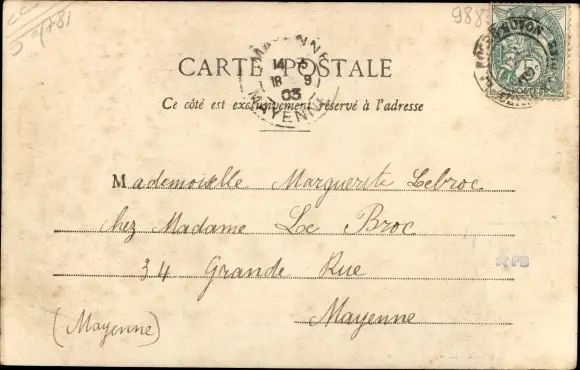 CARTE POSTALE
MAYENNE
18 9
03
MAYENNE
Ce côté est exclusivement réservé à l'adresse
Mademoiselle Marguerite Lebroc
chez Madame Le Broc
34 Grande Rue
Mayenne
(Mayenne)